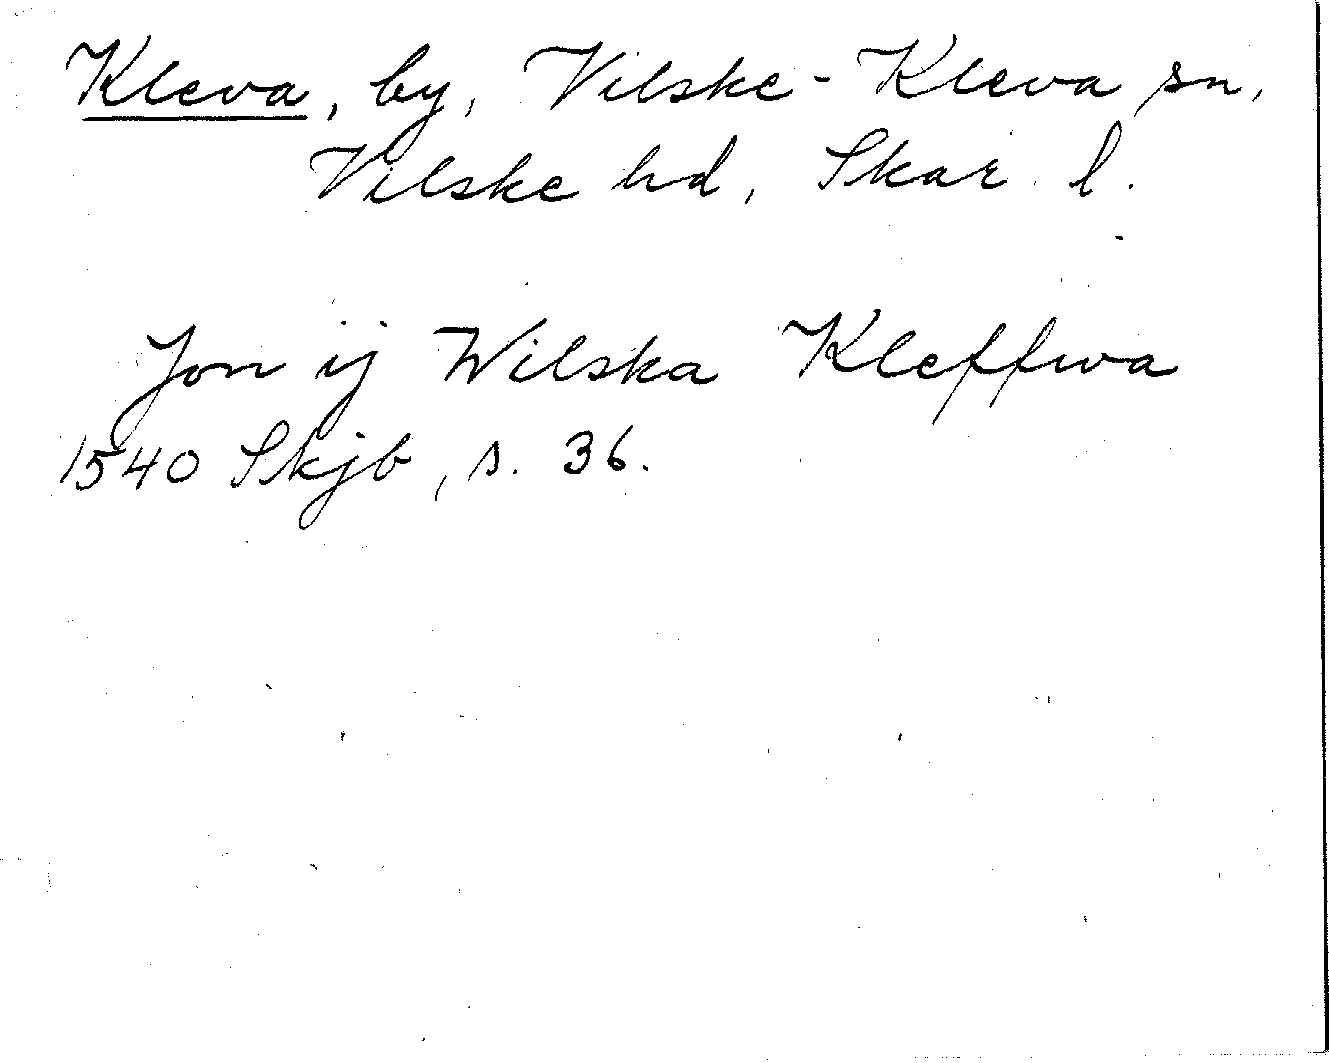 Kleva, by, Vilske-Kleva sn,
Vilske hd, Skar. l.
Jon ij Wilska Kleffwa
1540 Skjb, s. 36.